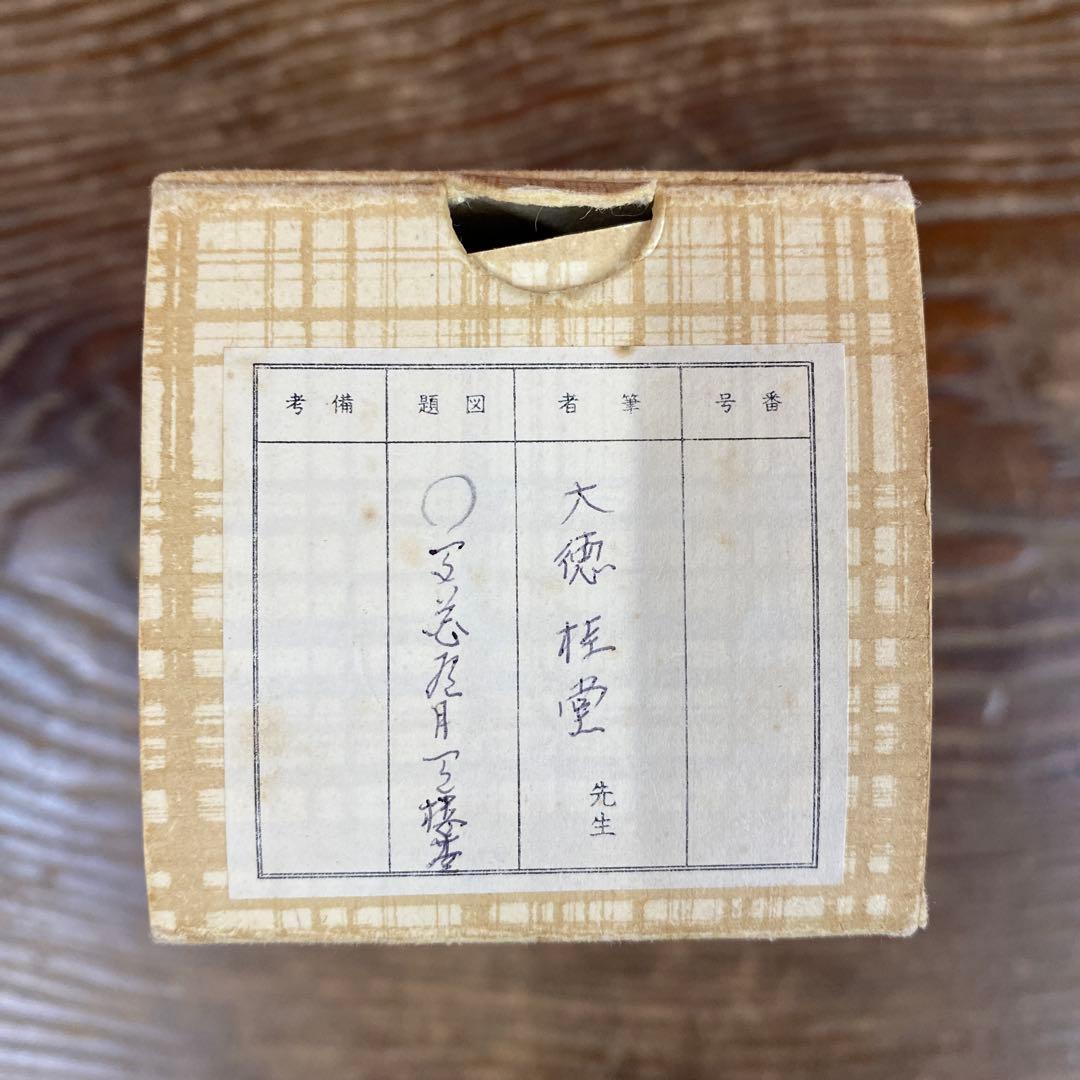 番号
筆者
図題
備考
大徳 桂堂 先生
○有花有月有楼台